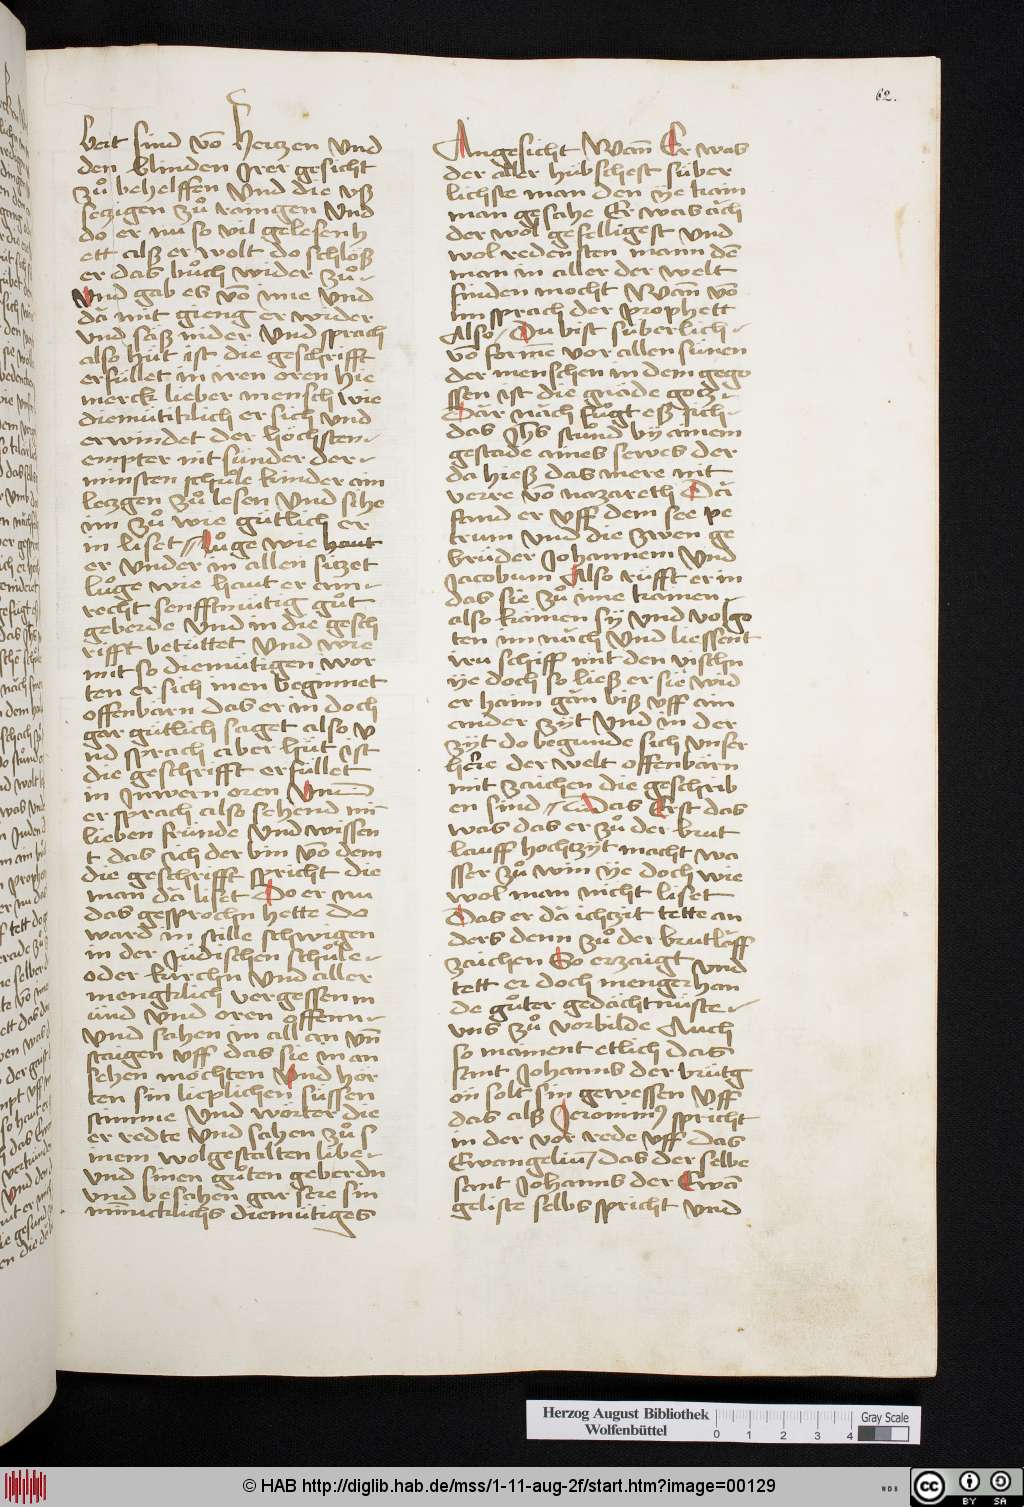 62.
bert sind võ Hertzen Vnd
den blinden Irer gesicht
zů behelffen Vnd die vß
setzigen zů rainigen Vnd
do er nu so vil gelesen h
ett alß er wolt do schlöß
er das bůch wider zů
Vnd gab es võ ime Vnd
dã mit gieng er wider
vnd saß nider Vnd sprach
also hüt ist die geschrifft
erfüllet in iren oren hie
merck lieber mensch wie
diemütiklich er sich vnd
erwindet der höchsten
empter nit sunder der
minsten schůle kinder ain
letzgen zů lesen Vnd sihe
im zů wie gütlich er
in liset // Lůge wie haut
er vnder in allen sitzet
lůge wie haut er ain
recht senfftmütig gůt
geberde Vnd in die gesch
rifft betüttet Vnd wie
mit so diemütigen wor
ten er sich inen beginnet
offenbarn das er in doch
gar gütlich saget also v
nd sprach aber hüt ist
die geschrifft erfüllet
in Iuwern oren Vnd
er sprach also sehend mĩ
lieben fründe Vnd wissen
t das ich der bin võ dem
die geschrifft spricht die
man dã liset Do er nu
das gesprochn hette do
ward in stille schwigen
in der Jüdischen schůle
oder kirchn Vnd aller
mengklich vergessen in
ünd Vnd oren offenn
Vnd sahen in all an vñ
staigen vff das sie in an
sehen möchten Vnd hör
ten sin lieplichen süssen
stimme Vnd wörter die
er redte Vnd sahen zů s
inem wolgestalten libe
Vnd sinen gůten geberdn
Vnd besahen gar sere sin
minncklichs diemütiges
Angesicht Wañ Er was
der aller hübschest süber
lichste man den ÿe kain
man gesahe Er was äch
der wol geselligest Vnd
wol redensten mann dẽ
man in aller der welt
finden mocht Wañ võ
im sprach der prophett
Also / Du bist süberlich
võ forme vor allen sünen
der menschen in dem gego
ssen ist die gnäde gotz
Där näch fůgt eß sich
das Jhs stůnd by ainem
gestade aines sewes der
da hieß das mere nit
verre võ nazareth Dä
fand er vff dem see pe
trum Vnd die zwen ge
brüder Johannem Vnd
Jacobum Also rüfft er in
das sie zů ime kamen
also kämen sÿ Vnd volgo
ten im näch Vnd liessent
iru schiff mit den vischn
ÿe doch so ließ er sie wid
er haim gän biß vff ain
ander zÿt Vnd in der
zÿt do begunde sich vnser
herre der welt offenbarn
mit zaichen die geschrib
en sind // Das Erst das
was das er zů der brut
lauff hochtzÿt macht wa
sser zů win ÿe doch wie
wol man nicht liset
Das er dä ichtzit tette an
ders denn zů der brutläff
zaichen So erzaigt vnd
tett er doch menger han
de gůter gedächtnüste
vns zů vorbilde Auch
so mainent etlich das
sant Johanns der brütg
on solt sin gewessen Vff
das alß Jeronim9 spricht
in der vor rede vff das
Ewangeliũ / das der selbe
sant Johanns der Ewã
geliste selbs spricht Vnd
Herzog August Bibliothek
Wolfenbüttel
0 1 2 3 4
Gray Scale
© HAB http://diglib.hab.de/mss/1-11-aug-2f/start.htm?image=00129
cc BY SA